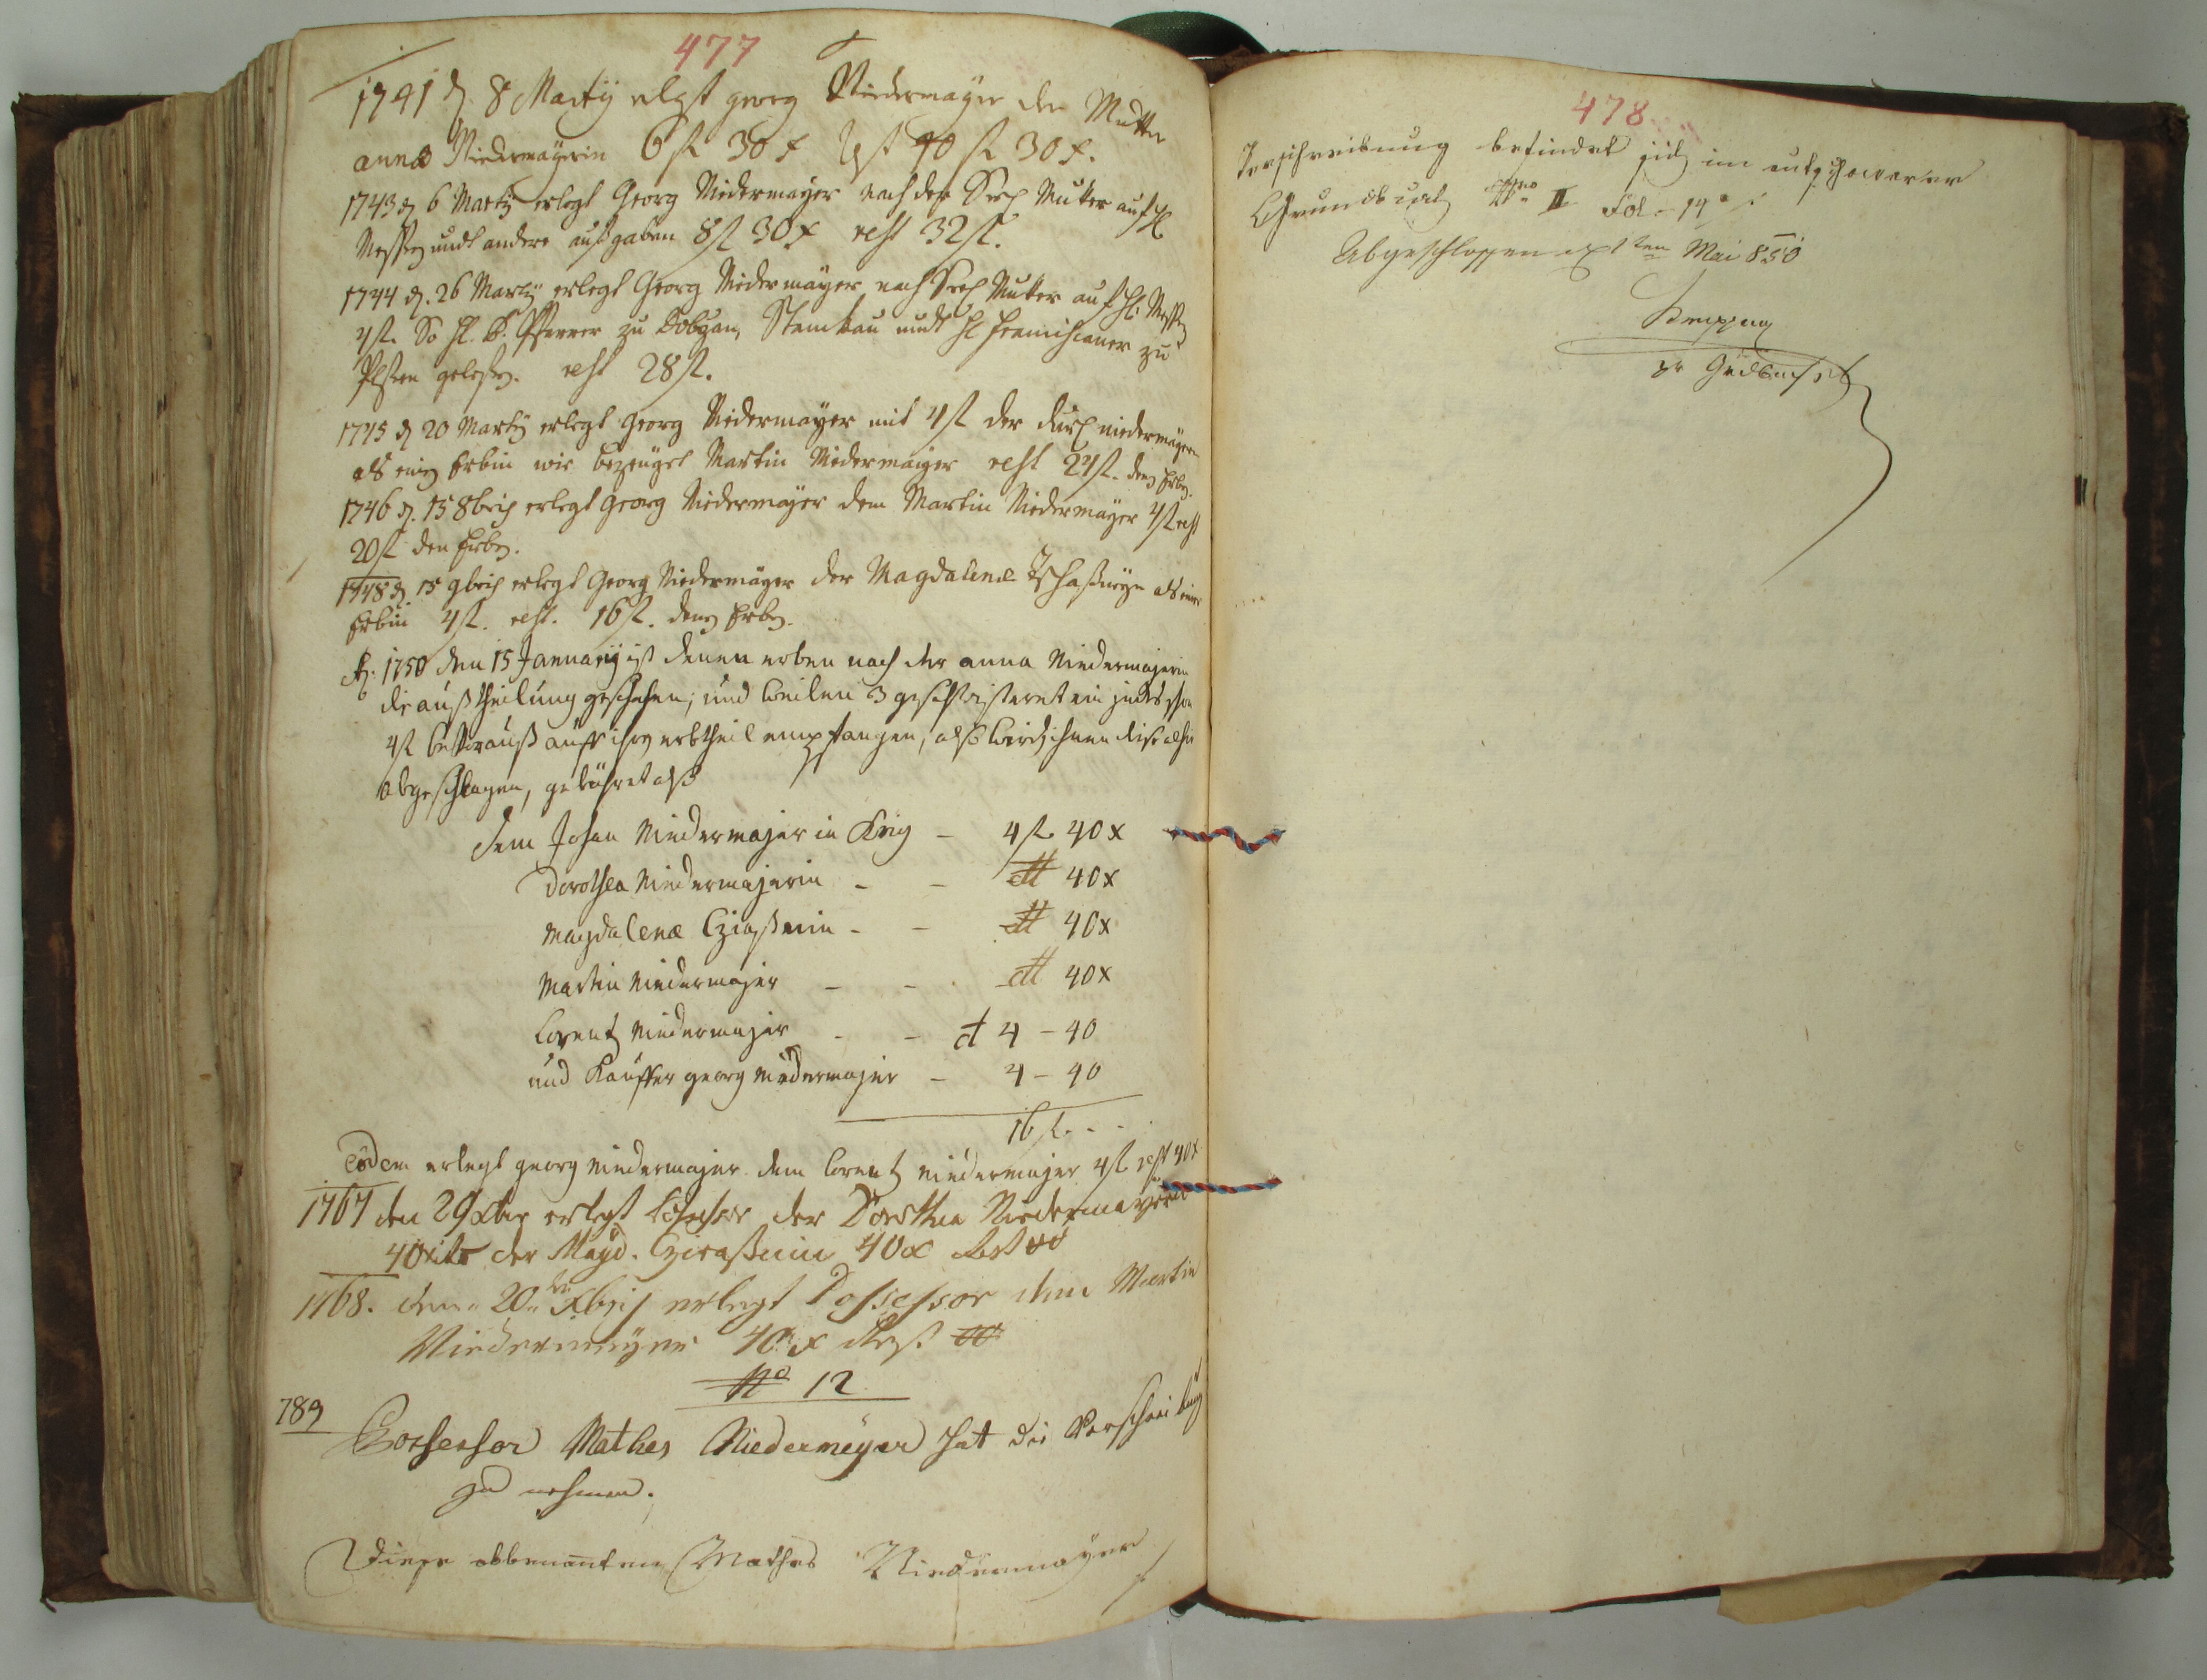 477
1741 d. 8 Martÿ elegt georg Niedermayer der Mutter
anna Niedermayerin 6 fl 30 x rest 40 fl 30 x.
1743 d 6 Martÿ erlegt Georg Niedermayer nach der Seel Mutter auf hl
Messen undt andere außgaben 8 fl 30 x rest 32 fl.
1744 d. 26 Martÿ erlegt Georg Niedermayer nach Seel Mutter auf hl. Messen
4 fl. So hl. H. Pfarrer zu Dobrzan, Stankau undt hl Franciscaner zu
Pilsen gelesen. rest 28 fl.
1745 d 20 Martÿ erlegt Georg Niedermayer mit 4 fl der niedermayerin
als eine Erbin wie bezeuget Martin Niedermayer rest 24 fl. denen Erben.
1746 d. 15 8bris erlegt Georg Niedermayer dem Martin Niedermayer 4 fl rest
20 fl den Erben.
1748 d. 15 9bris erlegt Georg Niedermayer der Magdalena als eine
Erbin 4 fl. rest. 16 fl. denen Erben.
A: 1750 den 15 Januarÿ ist denen erben nach der anna Niedermajerin
die außtheilung geschehen, und weilen 3 geschwisteret ein jedes schon
4 fl beVorauß auff ihren erbtheil empfangen, alß wird ihnen dise alhir
abgeschlagen, gebühret alß
dem Johan Niedermajer in Krig – 4 fl 40 x
Dorothea Niedermajerin – – 40 x
Magdalena Cziaßnin – – 40 x
Martin Niedermajer – – 40 x
Lorentz Niedermajer – – 4 – 40
und Kauffer georg Niedermajer – 4 – 40
16 fl. - -
eodem erlegt georg niedermajer dem Lorentz niedermajer 4 fl rest 40 x
1767 den 29 xbr erlegt der Dorothea Niedermayerin
40 x der Magd. Cziaßnin 40 x
1768. den 20 Xbris erlegt Possessor dem Martin
Niedermayer 40 x Rest
No 12
789
Possessor Mathes Niedermeyer hat die Verschreibung
zu nehmen.
Diese obbenanten Mathes Niedermayer
478
Verschreibung befindet sich im
Grundbuch No II Fol. 14
Abgeschlossen den 1ten Mai 850